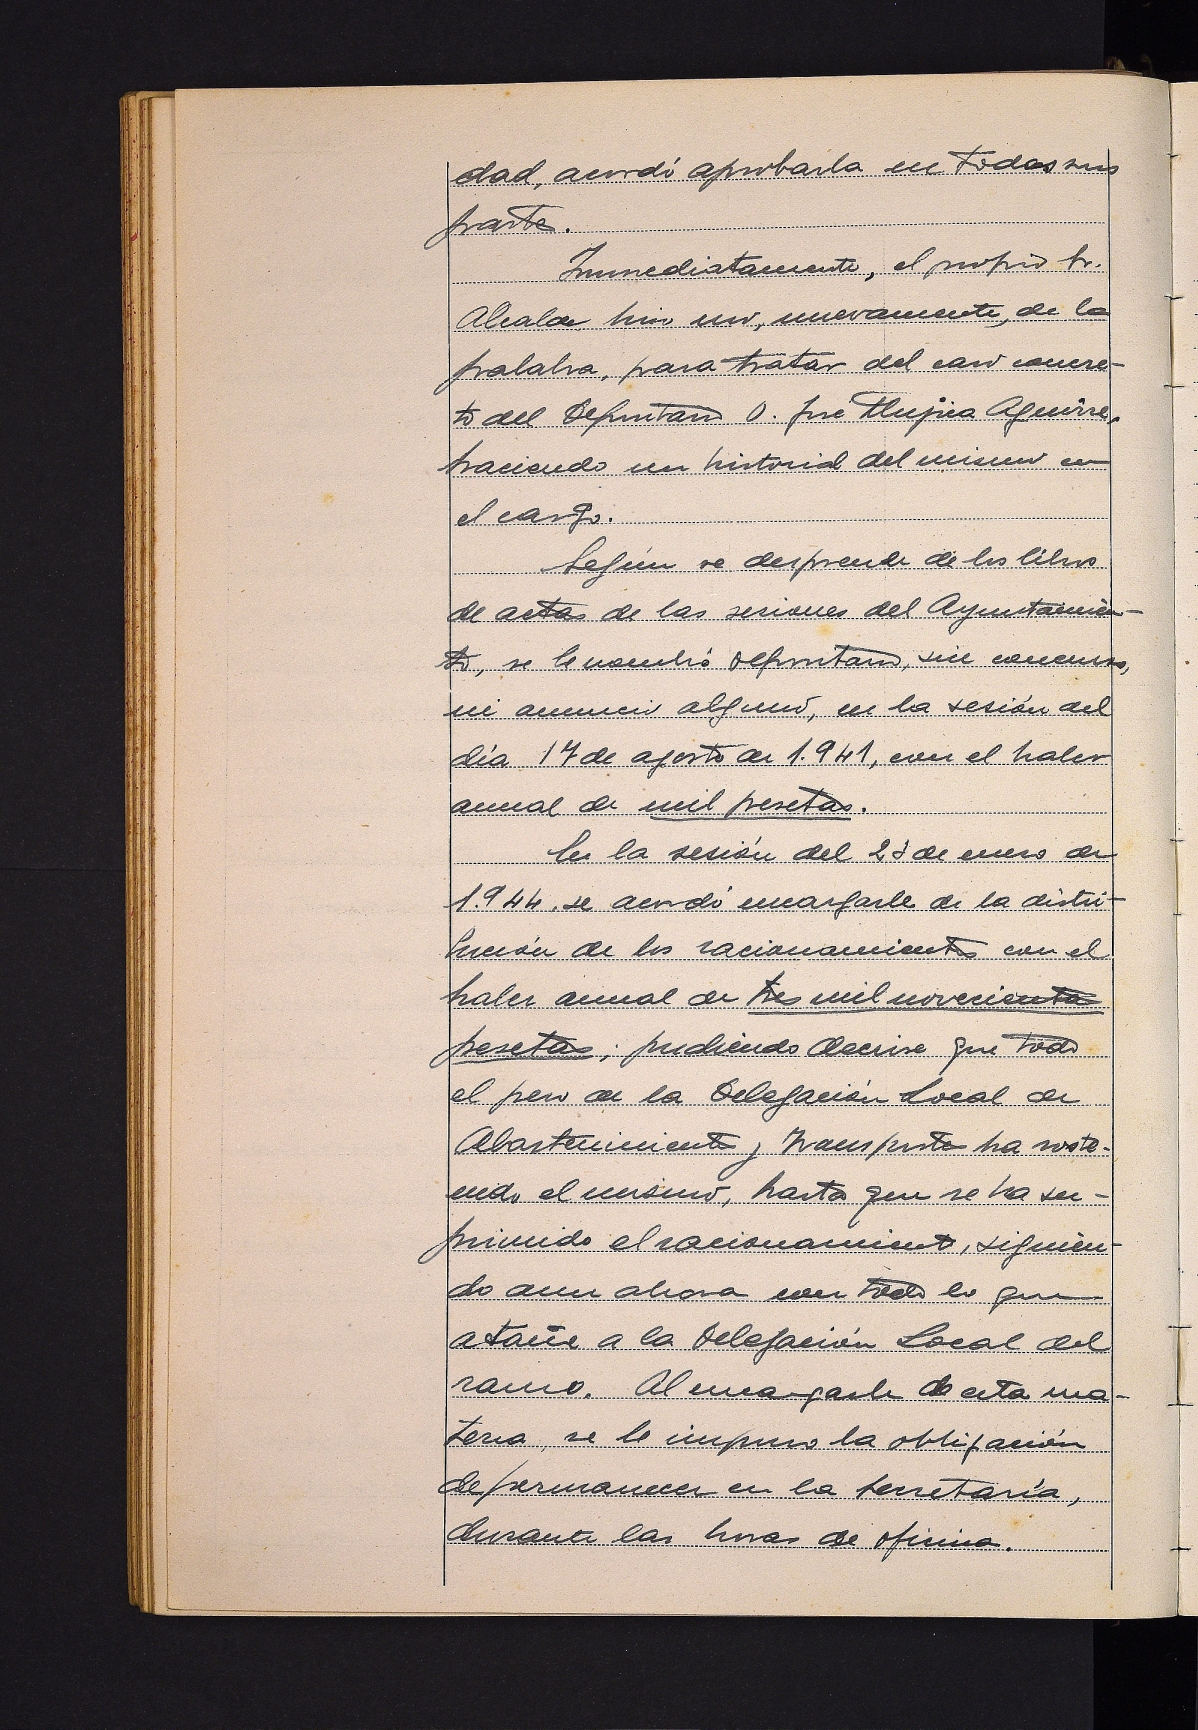 dad, acordó aprobarla en todas sus
partes.
Inmediatamente, el propio Sr.
Alcalde hizo uso, nuevamente, de la
palabra, para tratar del caso concre-
to del Depositario D. José Mujica Aguirre,
haciendo un historial del mismo en
el cargo.
Según se desprende de los libros
de actas de las sesiones del Ayuntamien-
to, se le nombró Depositario, sin concurso,
ni anuncio alguno, en la sesión del
día 17 de agosto de 1.941, con el haber
anual de mil pesetas.
En la sesión del 23 de enero de
1.944, se acordó encargarle de la distri-
bución de los racionamientos con el
haber anual de tres mil novecientas
pesetas; pudiendo decirse que todo
el peso de la Delegación Local de
Abastecimientos y Transportes ha soste-
nido el mismo, hasta que se ha su-
primido el racionamiento, siguien-
do aun ahora con todo lo que
atañe a la Delegación Local del
ramo. Al encargarle de esta ma-
teria, se le impuso la obligación
de permanecer en la Secretaría,
durante las horas de oficina.